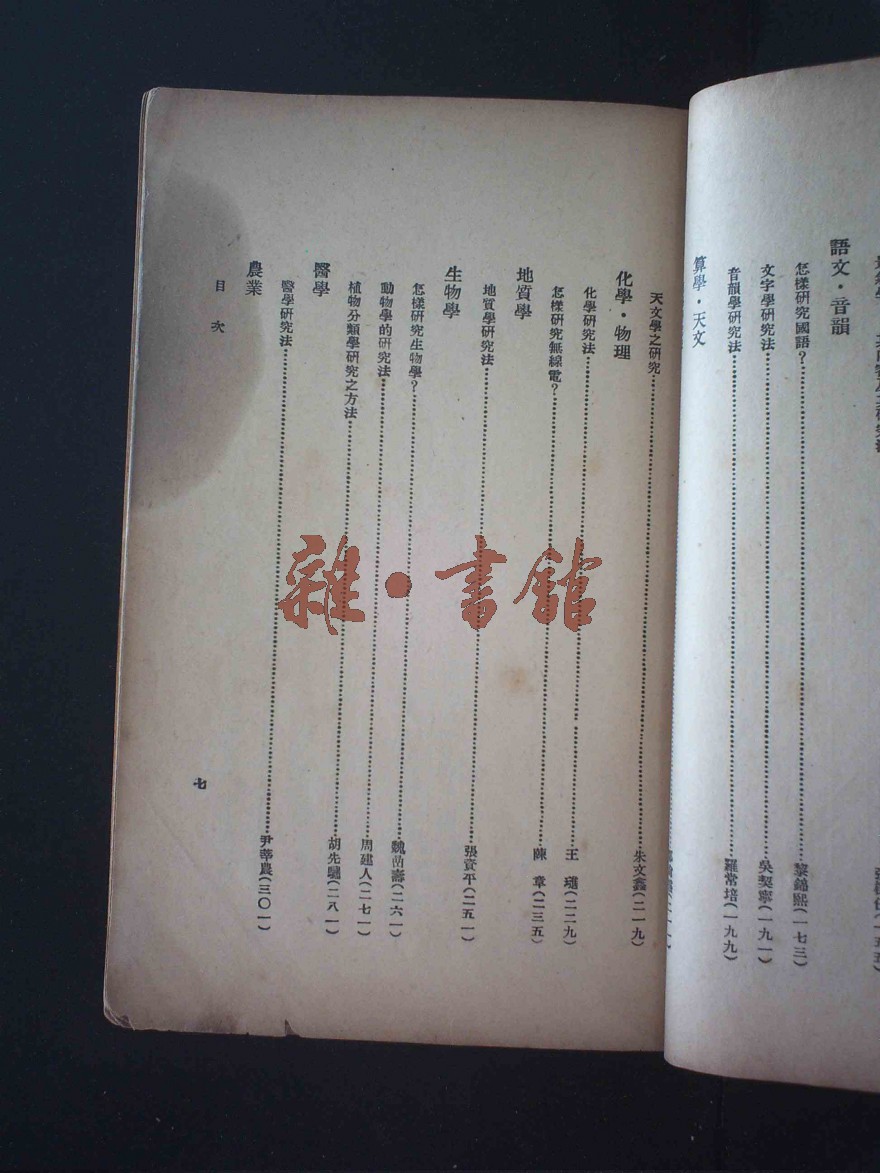 語文・音韻
怎樣研究國語？……黎錦熙(一七三)
文字學研究法……吳契寧(一九一)
音韻學研究法……羅常培(一九九)
算學・天文
天文學之研究……朱文鑫(二一九)
化學・物理
化學研究法……王璡(二二九)
怎樣研究無線電？……陳章(二三五)
地質學
地質學研究法……張資平(二五一)
生物學
怎樣研究生物學？……魏嵒壽(二六一)
動物學的研究法……周建人(二七一)
植物分類學研究之方法……胡先驌(二八一)
醫學
醫學研究法……尹莘農(三〇一)
農業
目次
七
雜・書館